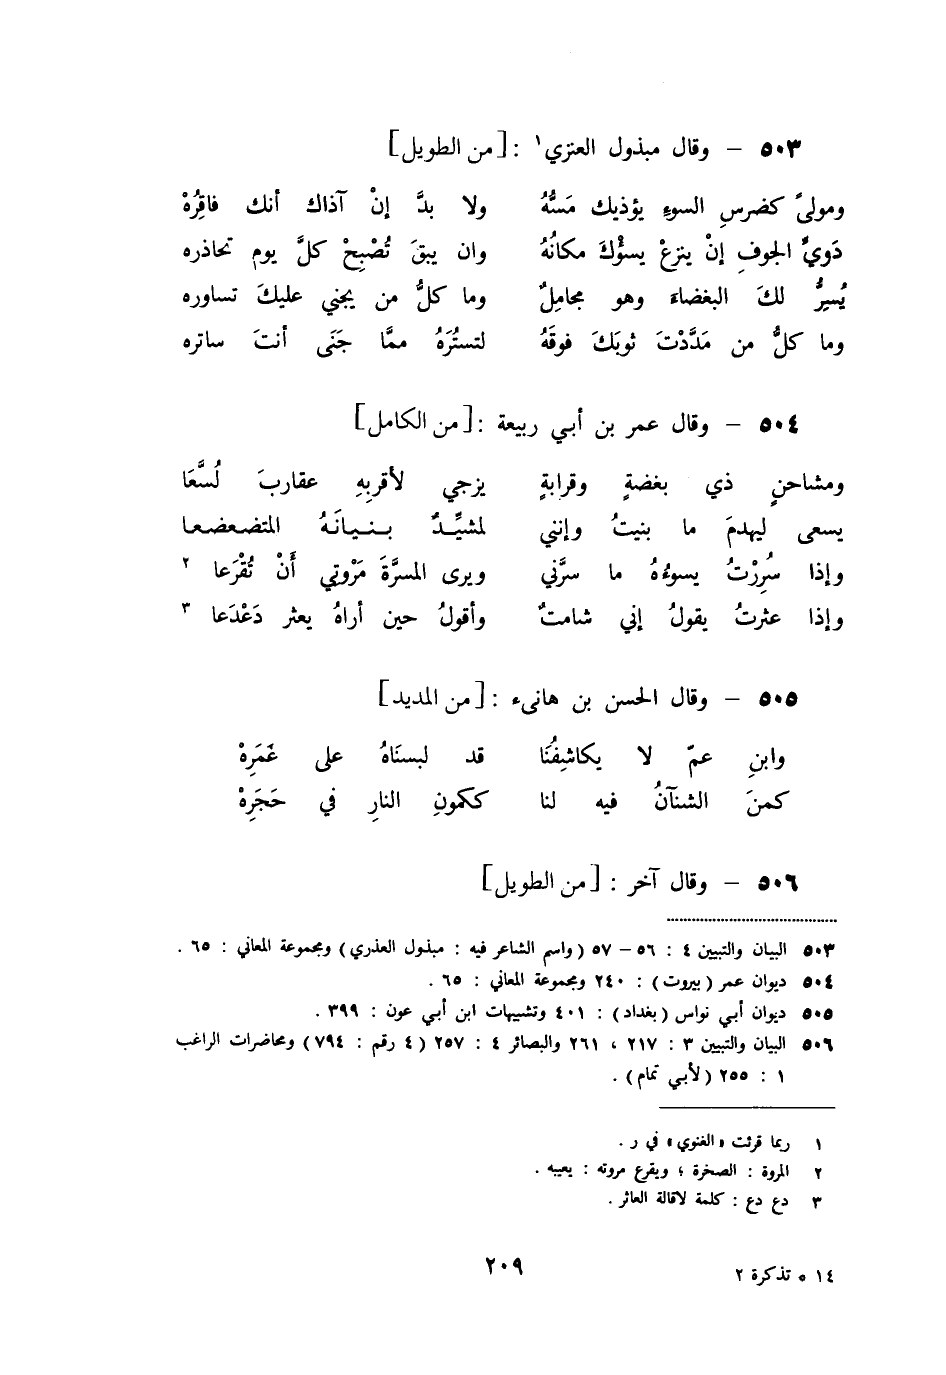 ٥٠٣ – وقال مبذول العنزي١ : [من الطويل]
ومولىً كضرسِ السوءِ يؤذيك مَسُّهُ ولا بدَّ إنْ آذاك أنك فاقِرُهْ
دَويُّ الجوفِ إنْ ينزعْ يسؤْكَ مكانُهُ وان يبقَ تُصْبِحْ كلَّ يوم تحاذره
يُسِرُّ لكَ البغضاءَ وهو مجاملٌ وما كلُّ من يجني عليكَ تساوره
وما كلُّ من مَدَّدْتَ ثوبَكَ فوقَهُ لتستُرَهُ ممَّا جَنَى أنتَ ساتره
٥٠٤ – وقال عمر بن أبي ربيعة : [من الكامل]
ومشاحنٍ ذي بغضةٍ وقرابةٍ يزجي لأقربِهِ عقاربَ لُسَّعَا
يسعى ليهدمَ ما بنيتُ وإنني لمشيِّدٌ بنيانَهُ المتضعضعا
وإذا سُرِرْتُ يسوءُهُ ما سرَّني ويرى المسرَّةَ مَرْوتي أَنْ تُقْرَعا ٢
وإذا عثرتُ يقولُ إني شامتٌ وأقولُ حين أراهُ يعثر دَعْدَعا ٣
٥٠٥ – وقال الحسن بن هانىء : [من المديد]
وابنِ عمّ لا يكاشِفُنَا قد لبسنَاهُ على غَمَرِهْ
كمنَ الشنآنُ فيه لنا ككمونِ النارِ في حَجَرِهْ
٥٠٦ – وقال آخر : [من الطويل]
٥٠٣ البيان والتبيين ٤ : ٥٦ – ٥٧ (واسم الشاعر فيه : مبذول العذري) ومجموعة المعاني : ٦٥ .
٥٠٤ ديوان عمر (بيروت) : ٢٤٠ ومجموعة المعاني : ٦٥ .
٥٠٥ ديوان أبي نواس (بغداد) : ٤٠١ وتشبيهات ابن أبي عون : ٣٩٩ .
٥٠٦ البيان والتبيين ٣ : ٢١٧ ، ٢٦١ والبصائر ٤ : ٢٥٧ (٤ رقم : ٧٩٤) ومحاضرات الراغب
١ : ٢٥٥ (لأبي تمام) .
١ ربما قرئت «الغنوي» في ر .
٢ المروة : الصخرة ؛ ويقرع مروته : يعيبه .
٣ دع دع : كلمة لاقالة العاثر .
٢٠٩
١٤ ٥ تذكرة ٢